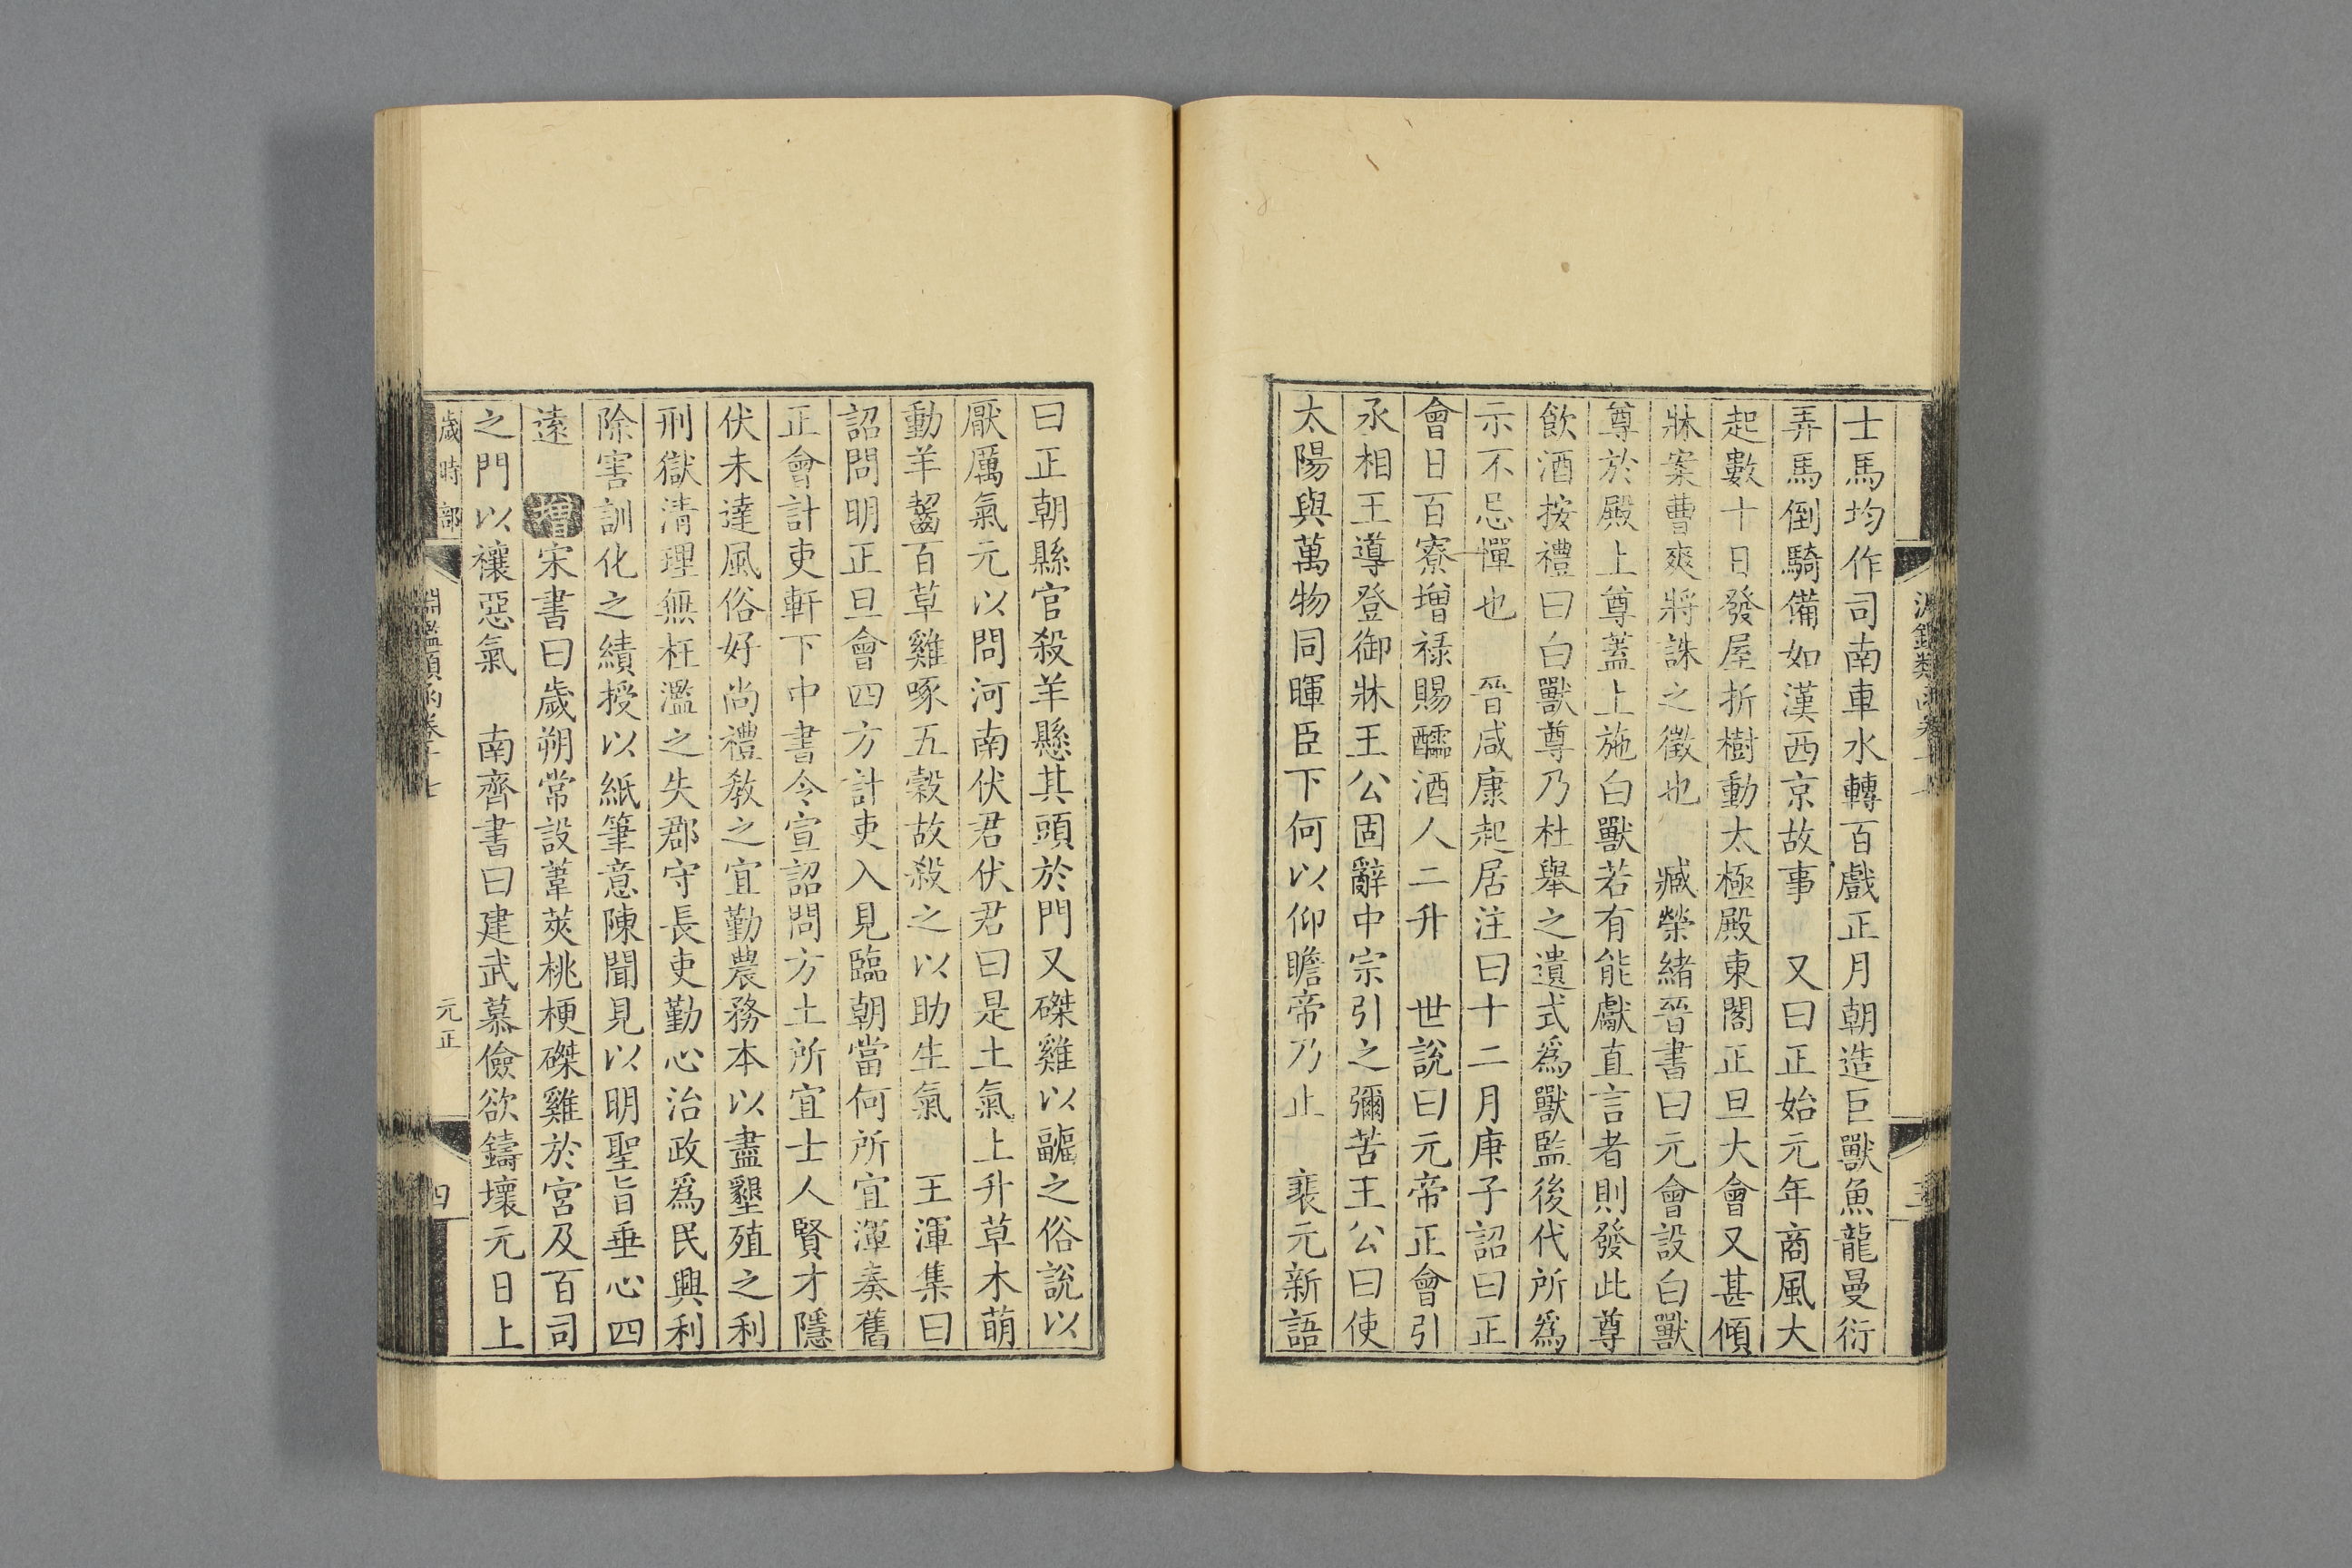 士馬均作司南車水轉百戲正月朝造巨獸魚龍曼衍
弄馬倒騎備如漢西京故事　又曰正始元年商風大
起數十日發屋折樹動太極殿東閣正旦大會又甚傾
牀案曹爽將誅之徵也　臧榮緒晉書曰元會設白獸
尊於殿上尊蓋上施白獸若有能獻直言者則發此尊
飲酒按禮曰白獸尊乃杜舉之遺式爲獸監後代所爲
示不忌憚也　晉咸康起居注曰十二月庚子詔曰正
會日百寮增祿賜醽酒人二升　世說曰元帝正會引
丞相王導登御牀王公固辭中宗引之彌苦王公曰使
太陽與萬物同暉臣下何以仰瞻帝乃止　裴元新語
曰正朝縣官殺羊懸其頭於門又磔雞以副之俗說以
厭厲氣元以問河南伏君伏君曰是土氣上升草木萌
動羊齧百草雞啄五穀故殺之以助生氣　王渾集曰
詔問明正旦會四方計吏入見臨朝當何所宜渾奏舊
正會計吏軒下中書令宣詔問方土所宜士人賢才隱
伏未達風俗好尚禮教之宜勤農務本以盡墾殖之利
刑獄清理無枉濫之失郡守長吏勤心治政爲民興利
除害訓化之績授以紙筆意陳聞見以明聖旨垂心四
遠　增宋書曰歲朔常設葦茭桃梗磔雞於宮及百司
之門以禳惡氣　南齊書曰建武慕儉欲鑄壞元日上
歲時部　淵鑑類函卷十七　元正　四